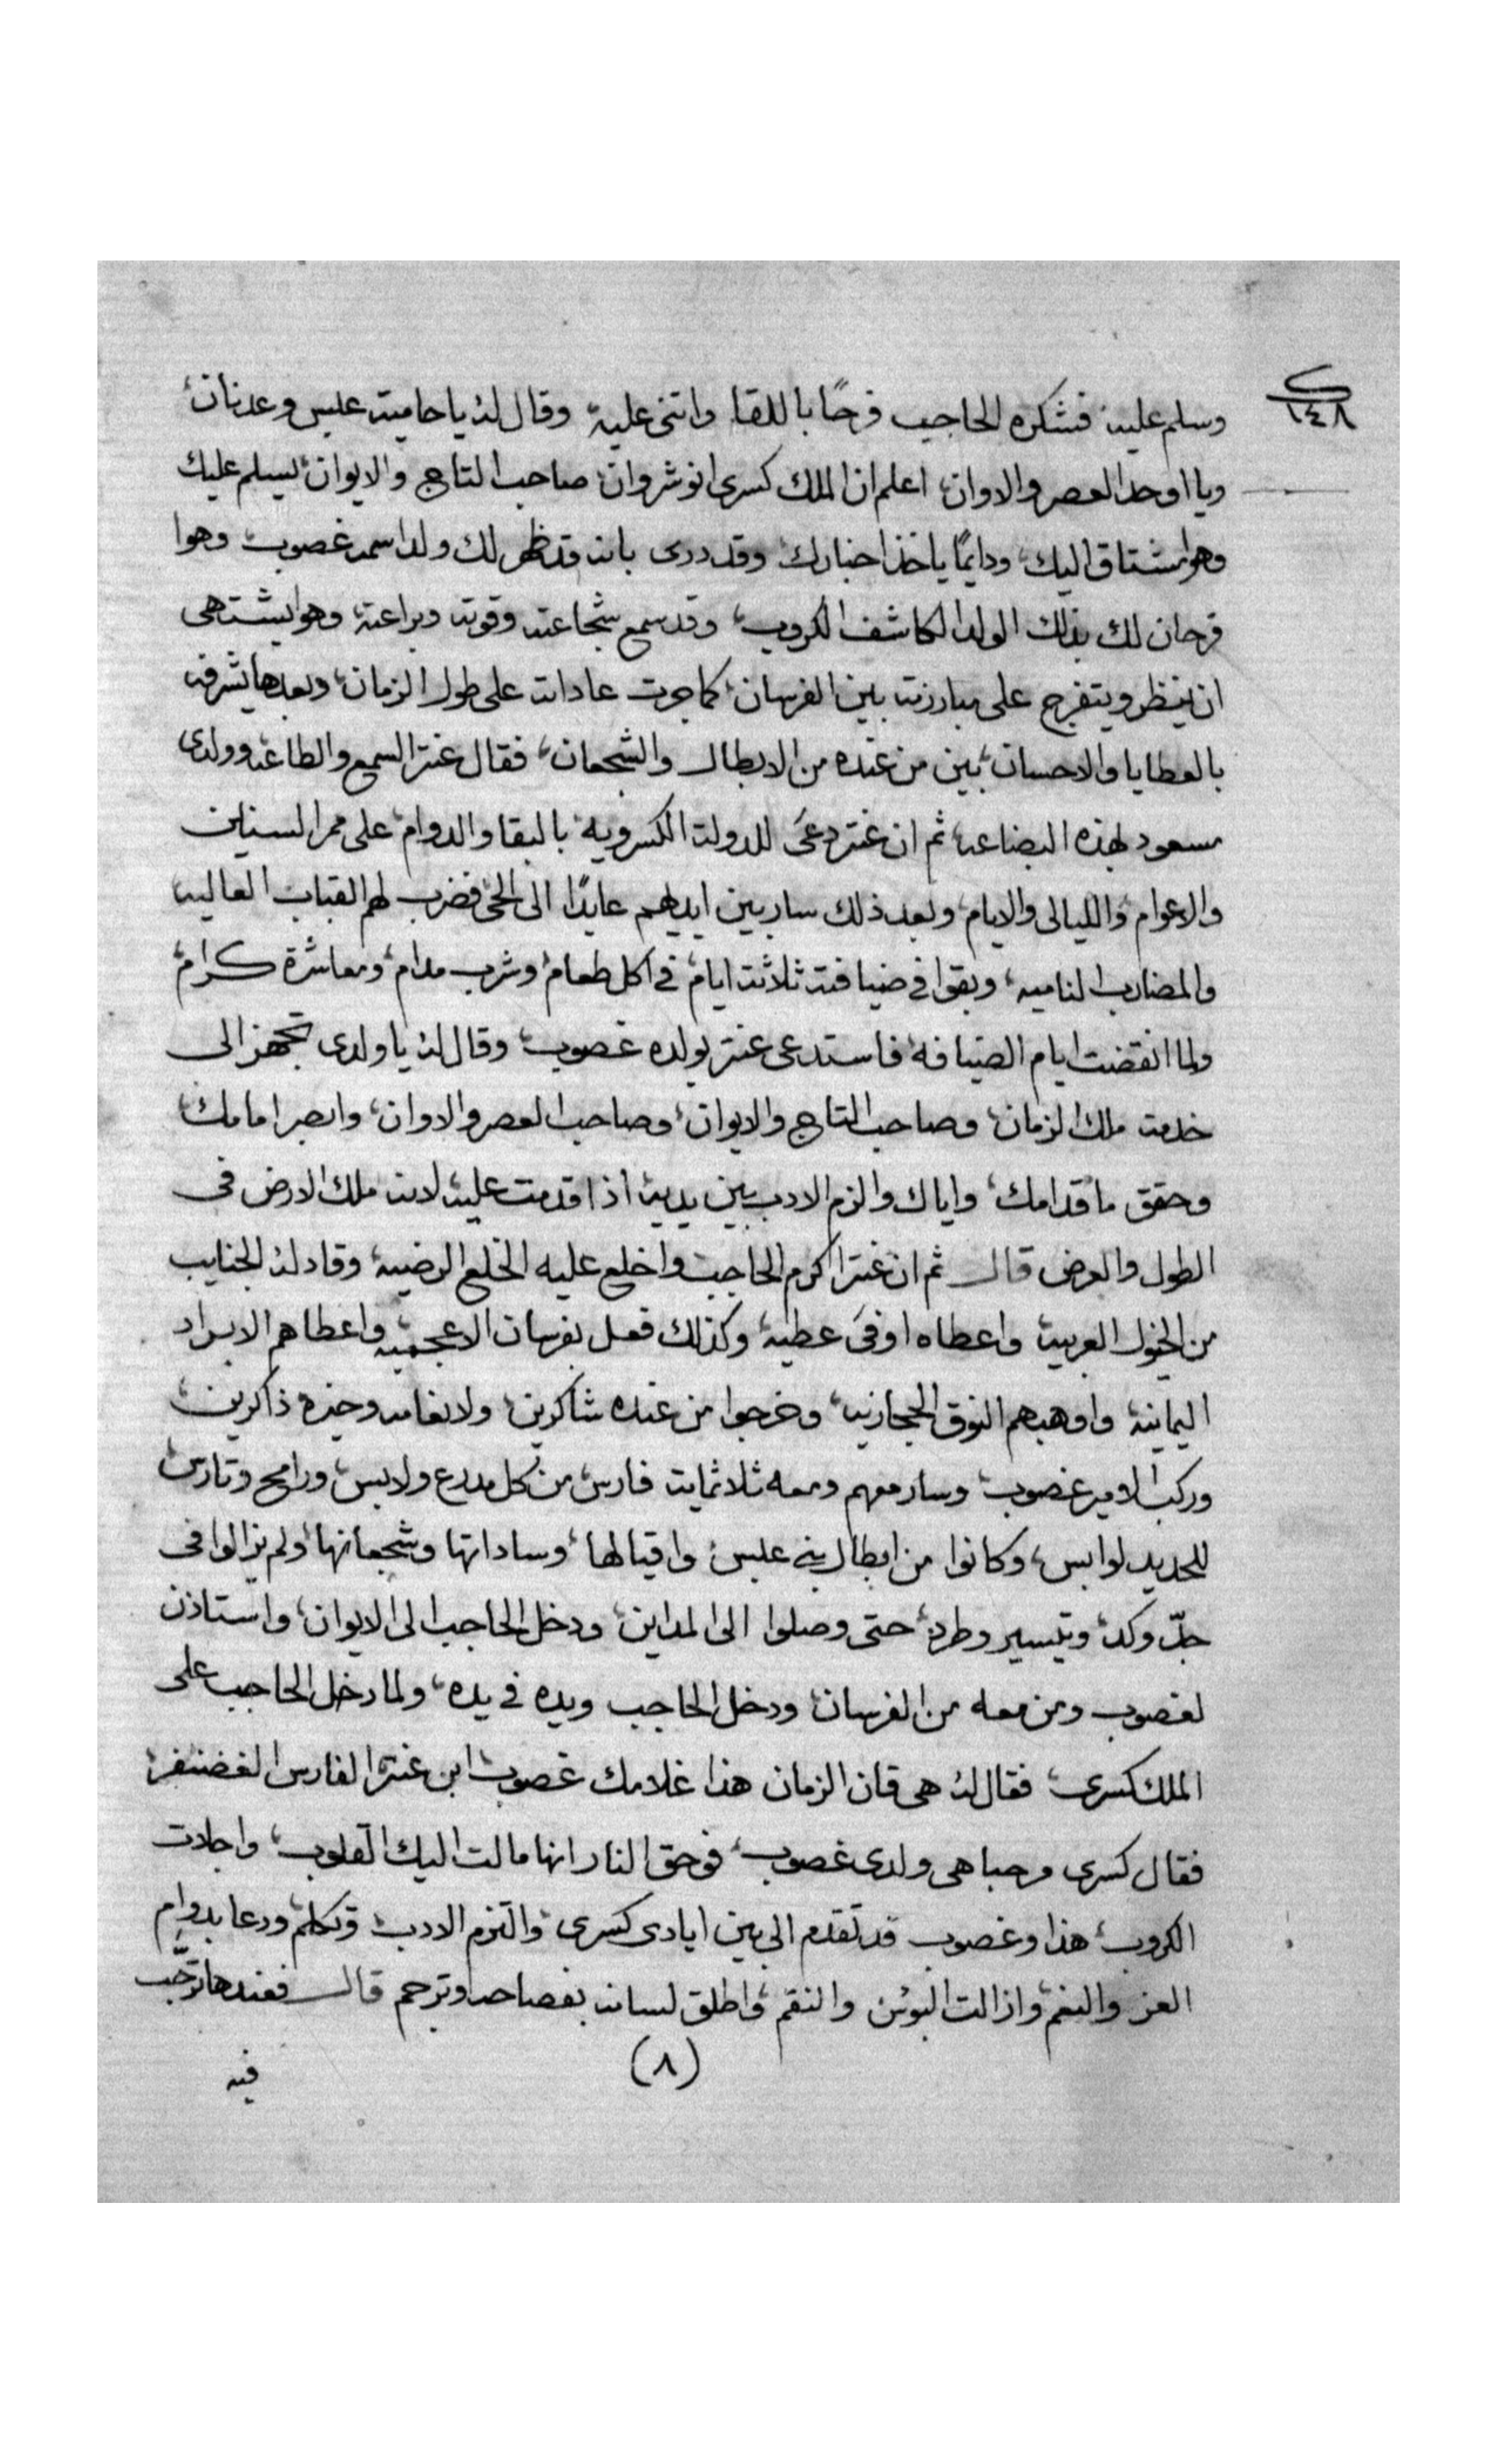 ١٤٨
وسلم عليه فشكره الحاجب فرحًا باللقا واثنى عليه وقال له ياحامية عبس وعدنان،
ويا اوحد العصر والاوان، اعلم ان الملك كسرى انوشروان صاحب التاج والايوان، يسلم عليك
وهوا مشتاق اليك، ودايمًا ياخذ اخبارك وقد درى بانه قد ظهر لك ولد اسمه غصوب، وهوا
فرحان لك بذلك الولد الكاشف الكروب، وقد سمع شجاعته وقوته وبراعته، وهوا يشتهى
ان ينظر ويتفرج على مبارزته بين الفرسان، كما جرت عاداته على طول الزمان، وبعدها يشرفه
بالعطايا والاحسان، بين من عنده من الابطال والشجعان، فقال عنتر السمع والطاعه وولدى
مسعود بهذه البضاعه، ثم ان عنتر دعىَ للدولة الكسرويه، بالبقا والدوام، على ممر السنين
والاعوام، والليالى والايام، وبعد ذلك سار بين ايديهم عايدًا الى الحى فضرب لهم القباب العاليه
والمضارب الناميه، وبقوا فى ضيافته ثلاثة ايام، فى اكل طعام، وشرب مدام، ومعاشرة كرام،
ولما انقضت ايام الضيافه، فاستدعى عنتر بولده غصوب، وقال له ياولدى تجهز الى
خدمة ملك الزمان، وصاحب التاج والايوان، وصاحب العصر والاوان، وابصر امامك،
وحقق ما قدامك، واياك والزم الادب بين يديه، اذا قدمت عليه لانه ملك الارض فى
الطول والعرض قال ثم ان عنترا اكرم الحاجب واخلع عليه الخلع الرضيه، وقاد له الجنايب
من الخيول العربيه واعطاه اوفىَ عطيه، وكذلك فعل بفرسان الاعجميه واعطاهم الابراد
اليمانيه، واوهبهم النوق الحجازيه، وخرجوا من عنده شاكرين، ولانعامه وخيره ذاكرين،
وركب الامير غصوب، وسار معهم ومعه ثلاثماية فارس، من كل مدرع ولابس، ورامح وتارس،
للحديد لوابس، وكانوا من ابطال بنى عبس، واقيالها، وساداتها وشجعانها، ولم يزالوا فى
جدّ وكد، وتيسير وطرد، حتى وصلوا الى المداين، ودخل الحاجب الى الايوان، واستاذن
لغصوب ومن معه من الفرسان، ودخل الحاجب ويده فى يده، ولما دخل الحاجب على
الملك كسرى، فقال له هى قان الزمان هذا غلامك غصوب، ابن عنترا الفارس الغضنفر،
فقال كسرى مرحبا هى ولدى غصوب، فوحق النار انها مالت اليك القلوب، واجلات
الكروب، هذا وغصوب قد تقدم الى بين ايادى كسرى، والتزم الادب، وتكلم، ودعا بدوام
العز والنعم، وازالت البوئس والنقم، واطلق لسانه بفصاحه وترجم قال فعندها ترحّب
(٨)
فيه